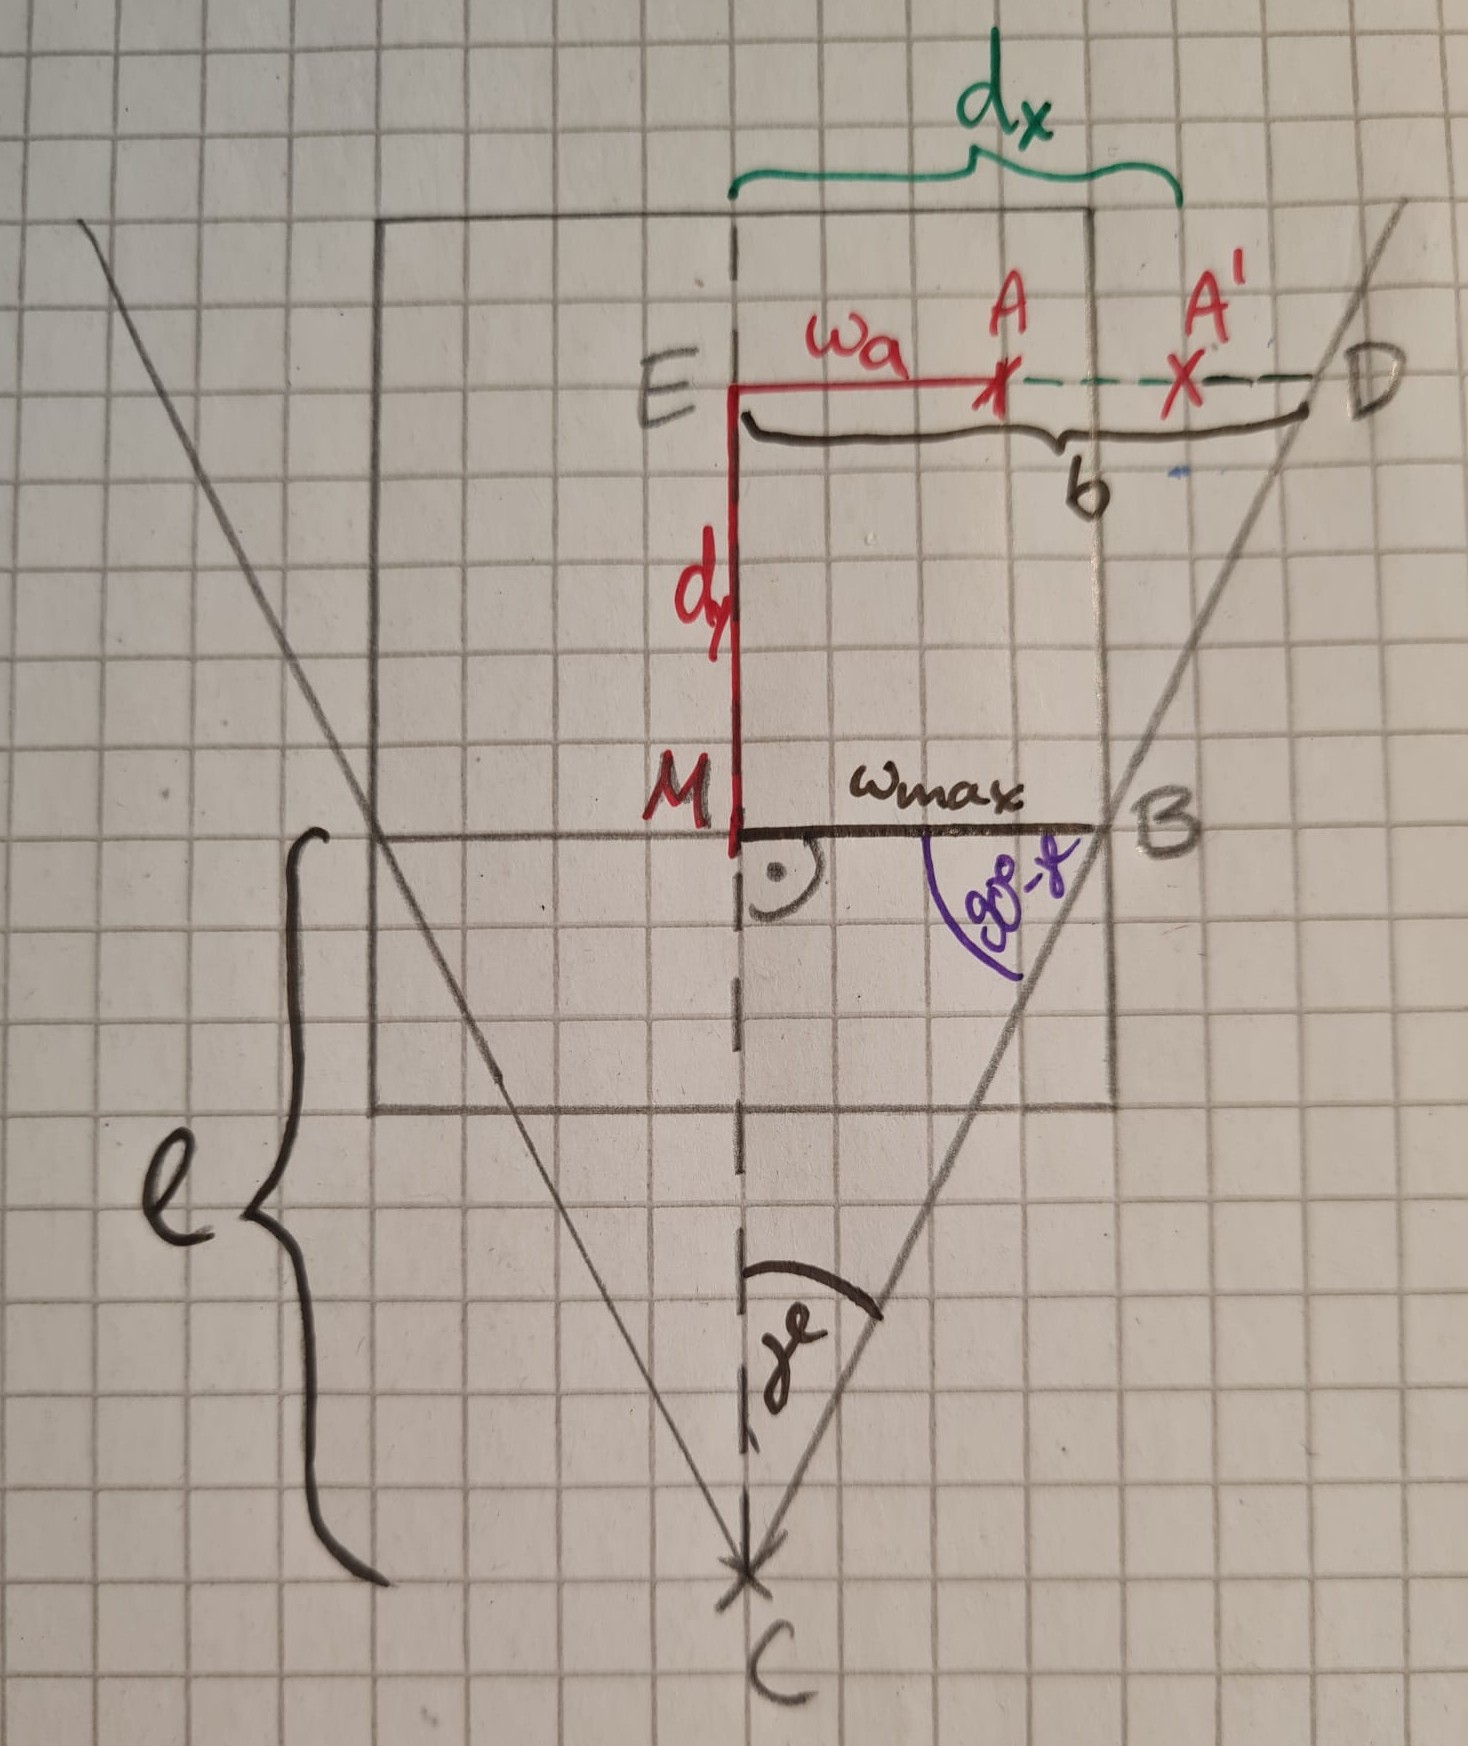 dx
A
A'
wa
E
D
b
dy
M
wmax
B
e
C